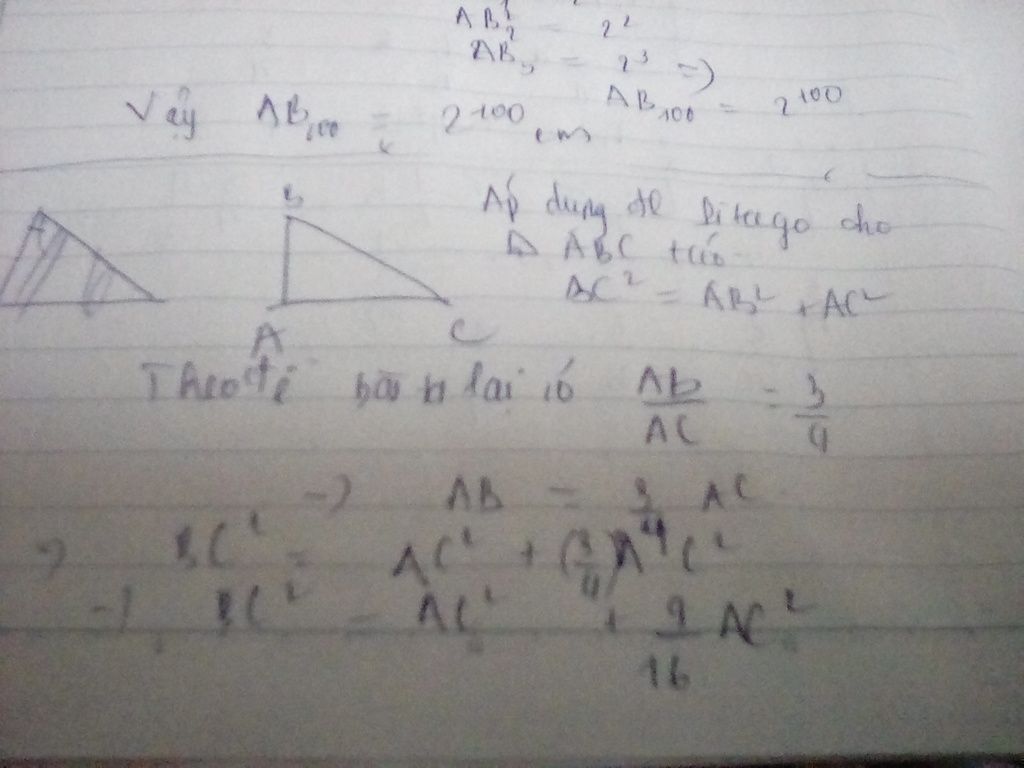 AB₂² = 2²
AB₃ = 2³ =>
Vậy AB₁₀₀ = 2¹⁰⁰ cm AB₁₀₀ = 2¹⁰⁰
Áp dụng đl Pitago cho
B
Δ ABC t có
BC² = AB² + AC²
A C
Theo đề bài ta lại có AB/AC = 3/4
=> AB = 3/4 AC
=> BC² = AC² + (3/4)² AC²
=> BC² = AC² + 9/16 AC²